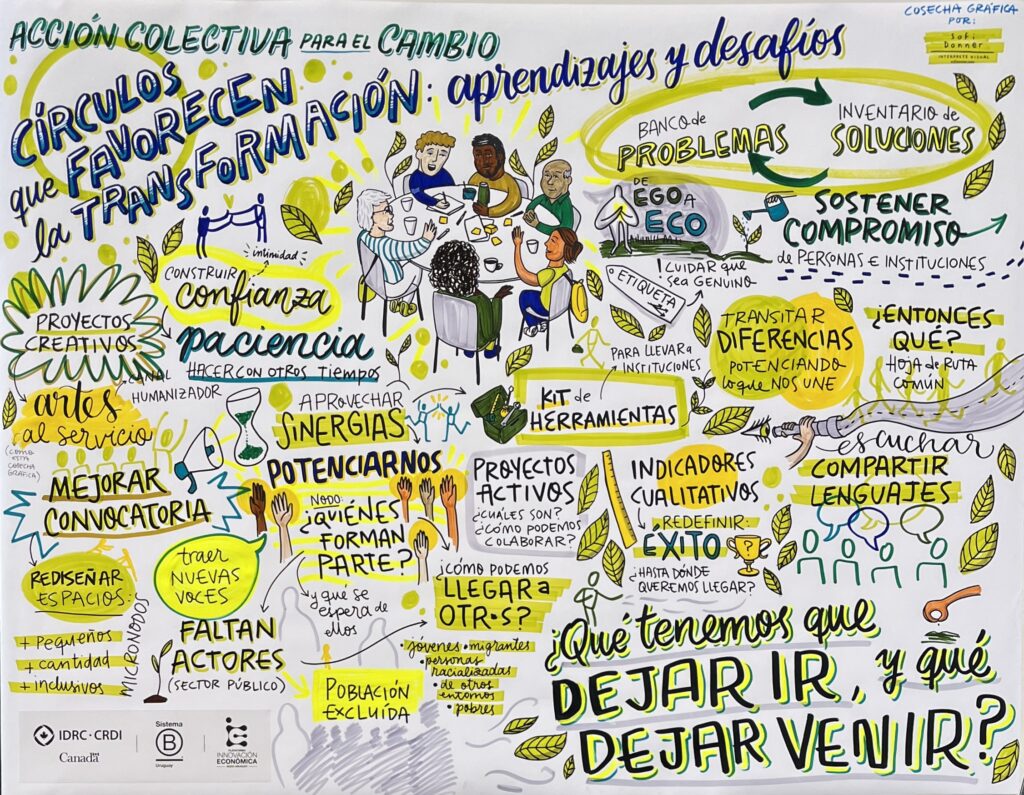 ACCIÓN COLECTIVA PARA EL CAMBIO
CÍRCULOS
que FAVORECEN
la TRANSFORMACIÓN: aprendizajes y desafíos
COSECHA GRÁFICA
POR:
Sofi
Donner
INTÉRPRETE VISUAL
BANCO de
PROBLEMAS
INVENTARIO de
SOLUCIONES
DE
EGO A
ECO
SOSTENER
COMPROMISO
de PERSONAS E INSTITUCIONES
intimidad
CONSTRUIR
confianza
ETIQUETA
! CUIDAR que
sea GENUINO
PROYECTOS
CREATIVOS
paciencia
HACER CON OTROS TIEMPOS
TRANSITAR
DIFERENCIAS
POTENCIANDO
lo que NOS UNE
¿ENTONCES
QUÉ?
HOJA de RUTA
COMÚN
PARA LLEVAR a
INSTITUCIONES
KIT de
HERRAMIENTAS
CANAL
HUMANIZADOR
artes
al servicio
(COMO
ESTA
COSECHA
GRÁFICA)
APROVECHAR
SINERGIAS
escuchar
COMPARTIR
LENGUAJES
MEJORAR
CONVOCATORIA
POTENCIARNOS
NODO:
¿QUIÉNES
FORMAN
PARTE?
y qué se
espera de
ellos
PROYECTOS
ACTIVOS
¿CUÁLES SON?
¿CÓMO PODEMOS
COLABORAR?
INDICADORES
CUALITATIVOS
REDEFINIR:
ÉXITO
¿HASTA DÓNDE
QUEREMOS LLEGAR?
REDISEÑAR
ESPACIOS:
+ PEQUEÑOS
+ cantidad
+ inclusivos
MICRONODOS
traer
NUEVAS
VOCES
FALTAN
ACTORES
(SECTOR PÚBLICO)
¿CÓMO PODEMOS
LLEGAR a
OTR•S?
• jóvenes • migrantes
• personas
racializadas
• de otros
entornos
• pobres
POBLACIÓN
EXCLUÍDA
¿Qué tenemos que
DEJAR IR, y qué
DEJAR VENIR?
IDRC · CRDI
Canada
Sistema
B
Uruguay
PLATAFORMA
INNOVACIÓN
ECONÓMICA